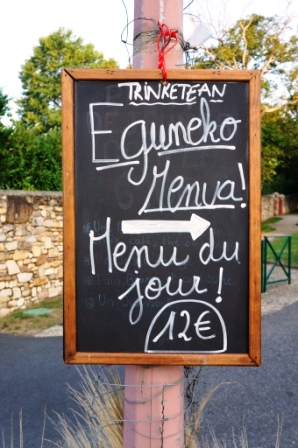 TRINKETEAN
Eguneko
Menua!
Menu du
jour!
12€